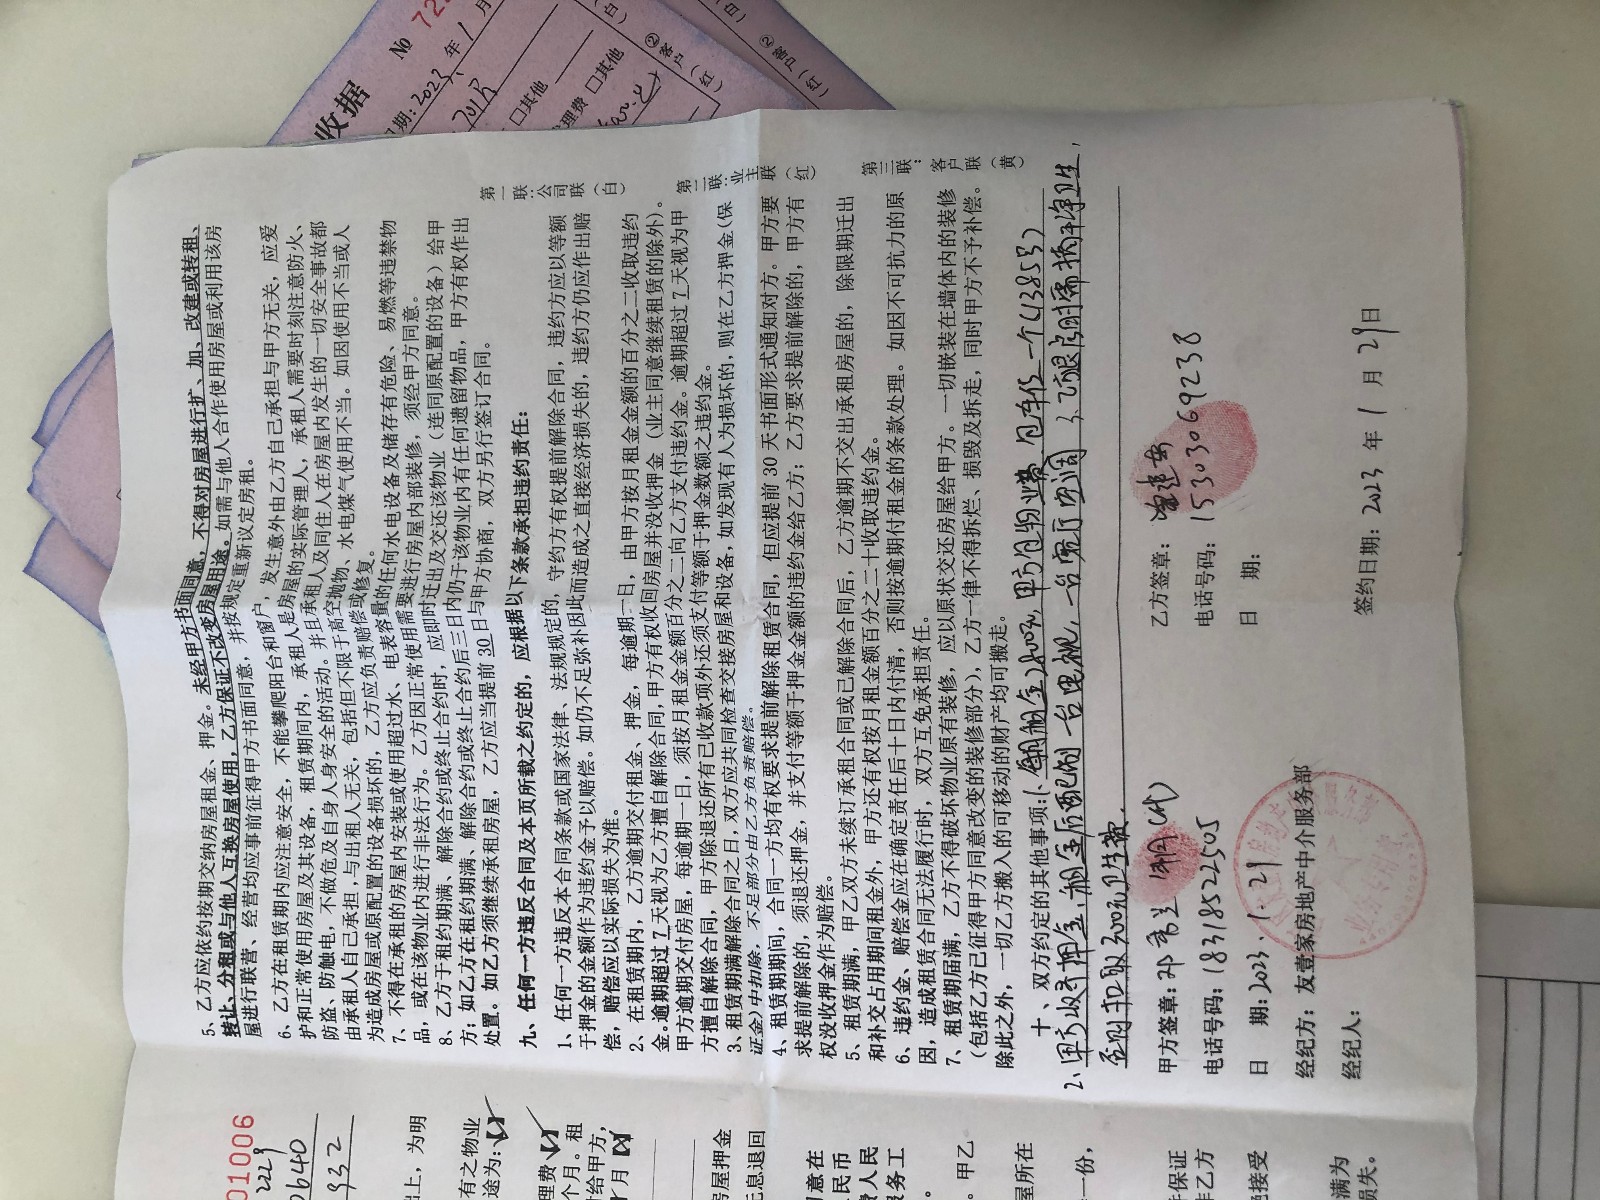 收据
No 72
日期: 2023 年 1 月
701房
□其他
管理费 □其他
②客户(红)
②客户(红)
(白)
(白)
5、乙方应依约按期交纳房屋租金、押金。未经甲方书面同意，不得对房屋进行扩、加、改建或转租、
转让、分租或与他人互换房屋使用，乙方保证不改变房屋用途。如需与他人合作使用房屋或利用该房
屋进行联营、经营均应事前征得甲方书面同意，并按规定重新议定房租。
6、乙方在租赁期内应注意安全，不能攀爬阳台和窗户，发生意外由乙方自己承担与甲方无关，应爱
护和正常使用房屋及其设备，租赁期间内，承租人是房屋的实际管理人，承租人需要时刻注意防火、
防盗、防触电，不做危及自身人身安全的活动。并且承租人及同住人在房屋内发生的一切安全事故都
由承租人自己承担，与出租人无关，包括但不限于高空抛物、水电煤气使用不当。如因使用不当或人
为造成房屋或原配置的设备损坏的，乙方应负责赔偿或修复。
7、不得在承租的房屋内安装或使用超过水、电表容量的任何水电设备及储存有危险、易燃等违禁物
品，或在该物业内进行非法行为。乙方因正常使用需要进行房屋内部装修，须经甲方同意。
8、乙方于租约期满、解除合约或终止合约时，应即时迁出及交还该物业（连同原配置的设备）给甲
方；如乙方在租约期满、解除合约或终止合约后三日内仍于该物业内有任何遗留物品，甲方有权作出
处置。如乙方须继续承租房屋，乙方应当提前 30 日与甲方协商，双方另行签订合同。
九、任何一方违反合同及本页所载之约定的，应根据以下条款承担违约责任：
1、任何一方违反本合同条款或国家法律、法规规定的，守约方有权提前解除合同，违约方应以等额
于押金的金额作为违约金予以赔偿。如仍不足弥补因此而造成之直接经济损失的，违约方仍应作出赔
偿，赔偿应以实际损失为准。
2、在租赁期内，乙方逾期交付租金、押金，每逾期一日，由甲方按月租金金额的百分之二收取违约
金。逾期超过 7 天视为乙方擅自解除合同，甲方有权收回房屋并没收押金（业主同意继续租赁的除外）。
甲方逾期交付房屋，每逾期一日，须按月租金金额百分之二向乙方支付违约金。逾期超过 7 天视为甲
方擅自解除合同，甲方除退还所有已收款项外还须支付等额于押金数额之违约金。
3、租赁期满解除合同之日，双方应共同检查交接房屋和设备，如发现有人为损坏的，则在乙方押金（保
证金）中扣除，不足部分由乙方负责赔偿。
4、租赁期期间，合同一方均有权要求提前解除租赁合同，但应提前 30 天书面形式通知对方。甲方要
求提前解除的，须退还押金，并支付等额于押金金额的违约金给乙方；乙方要求提前解除的，甲方有
权没收押金作为赔偿。
5、租赁期满，甲乙双方未续订承租合同或已解除合同后，乙方逾期不交出承租房屋的，除限期迁出
和补交占用期间租金外，甲方还有权按月租金额百分之二十收取违约金。
6、违约金、赔偿金应在确定责任后十日内付清，否则按逾期付租金的条款处理。如因不可抗力的原
因，造成租赁合同无法履行时，双方互免承担责任。
7、租赁期届满，乙方不得破坏物业原有装修，应以原状交还房屋给甲方。一切嵌装在墙体内的装修
（包括乙方已征得甲方同意改变的装修部分），乙方一律不得拆烂、损毁及拆走，同时甲方不予补偿。
除此之外，一切乙方搬入的可移动的财产均可搬走。
十、双方约定的其他事项:1、
2、
3、退房时需搞净卫生，
否则扣取300元卫生费.
第一联：公司联（白）
第二联：业主联（红）
第三联：客户联（黄）
甲方签章：
(代)
电话号码：18318522505
日 期：2023.1.29
经纪方：友壹家房地产中介服务部
经纪人：
乙方签章：
电话号码：15303069238
日 期：
签约日期：2023 年 1 月 29日
01006
2229
0640
932
上，为明
有之物业
途为:☑
理费☑
个月。租
付给甲方，
月
房屋押金
无息退回
同意在
民币
费人民
服务工
。甲乙
屋所在
一份，
保证
非乙方
接受
满为
损失。